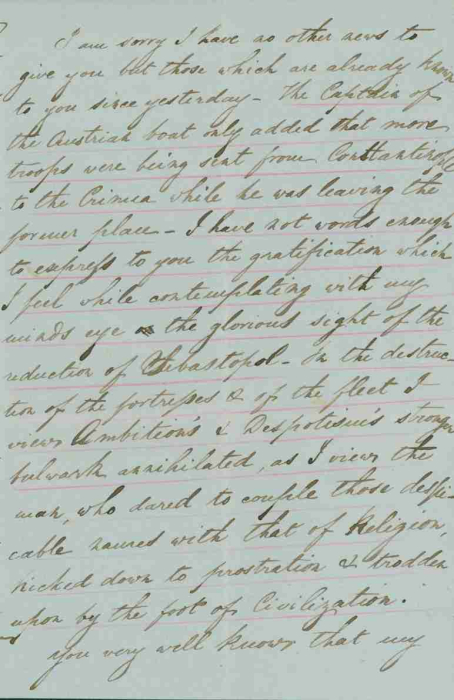 I am sorry I have no other news to
give you but those which are already known
to you since yesterday - The Captain of
the Austrian boat only added that more
troops were being sent from Constantinople
to the Crimea while he was leaving the
former place - I have not words enough
to express to you the gratification which
I feel while contemplating with my
minds eye the glorious sight of the
reduction of Sebastopol - In the destruc-
tion of the fortresses & of the fleet I
view Ambition's & Despotism's strongest
bulwark annihilated, as I view the
man, who dared to couple those despi-
cable names with that of Religion,
kicked down to prostration & trodden
upon by the foot of Civilization.
You very well know that my